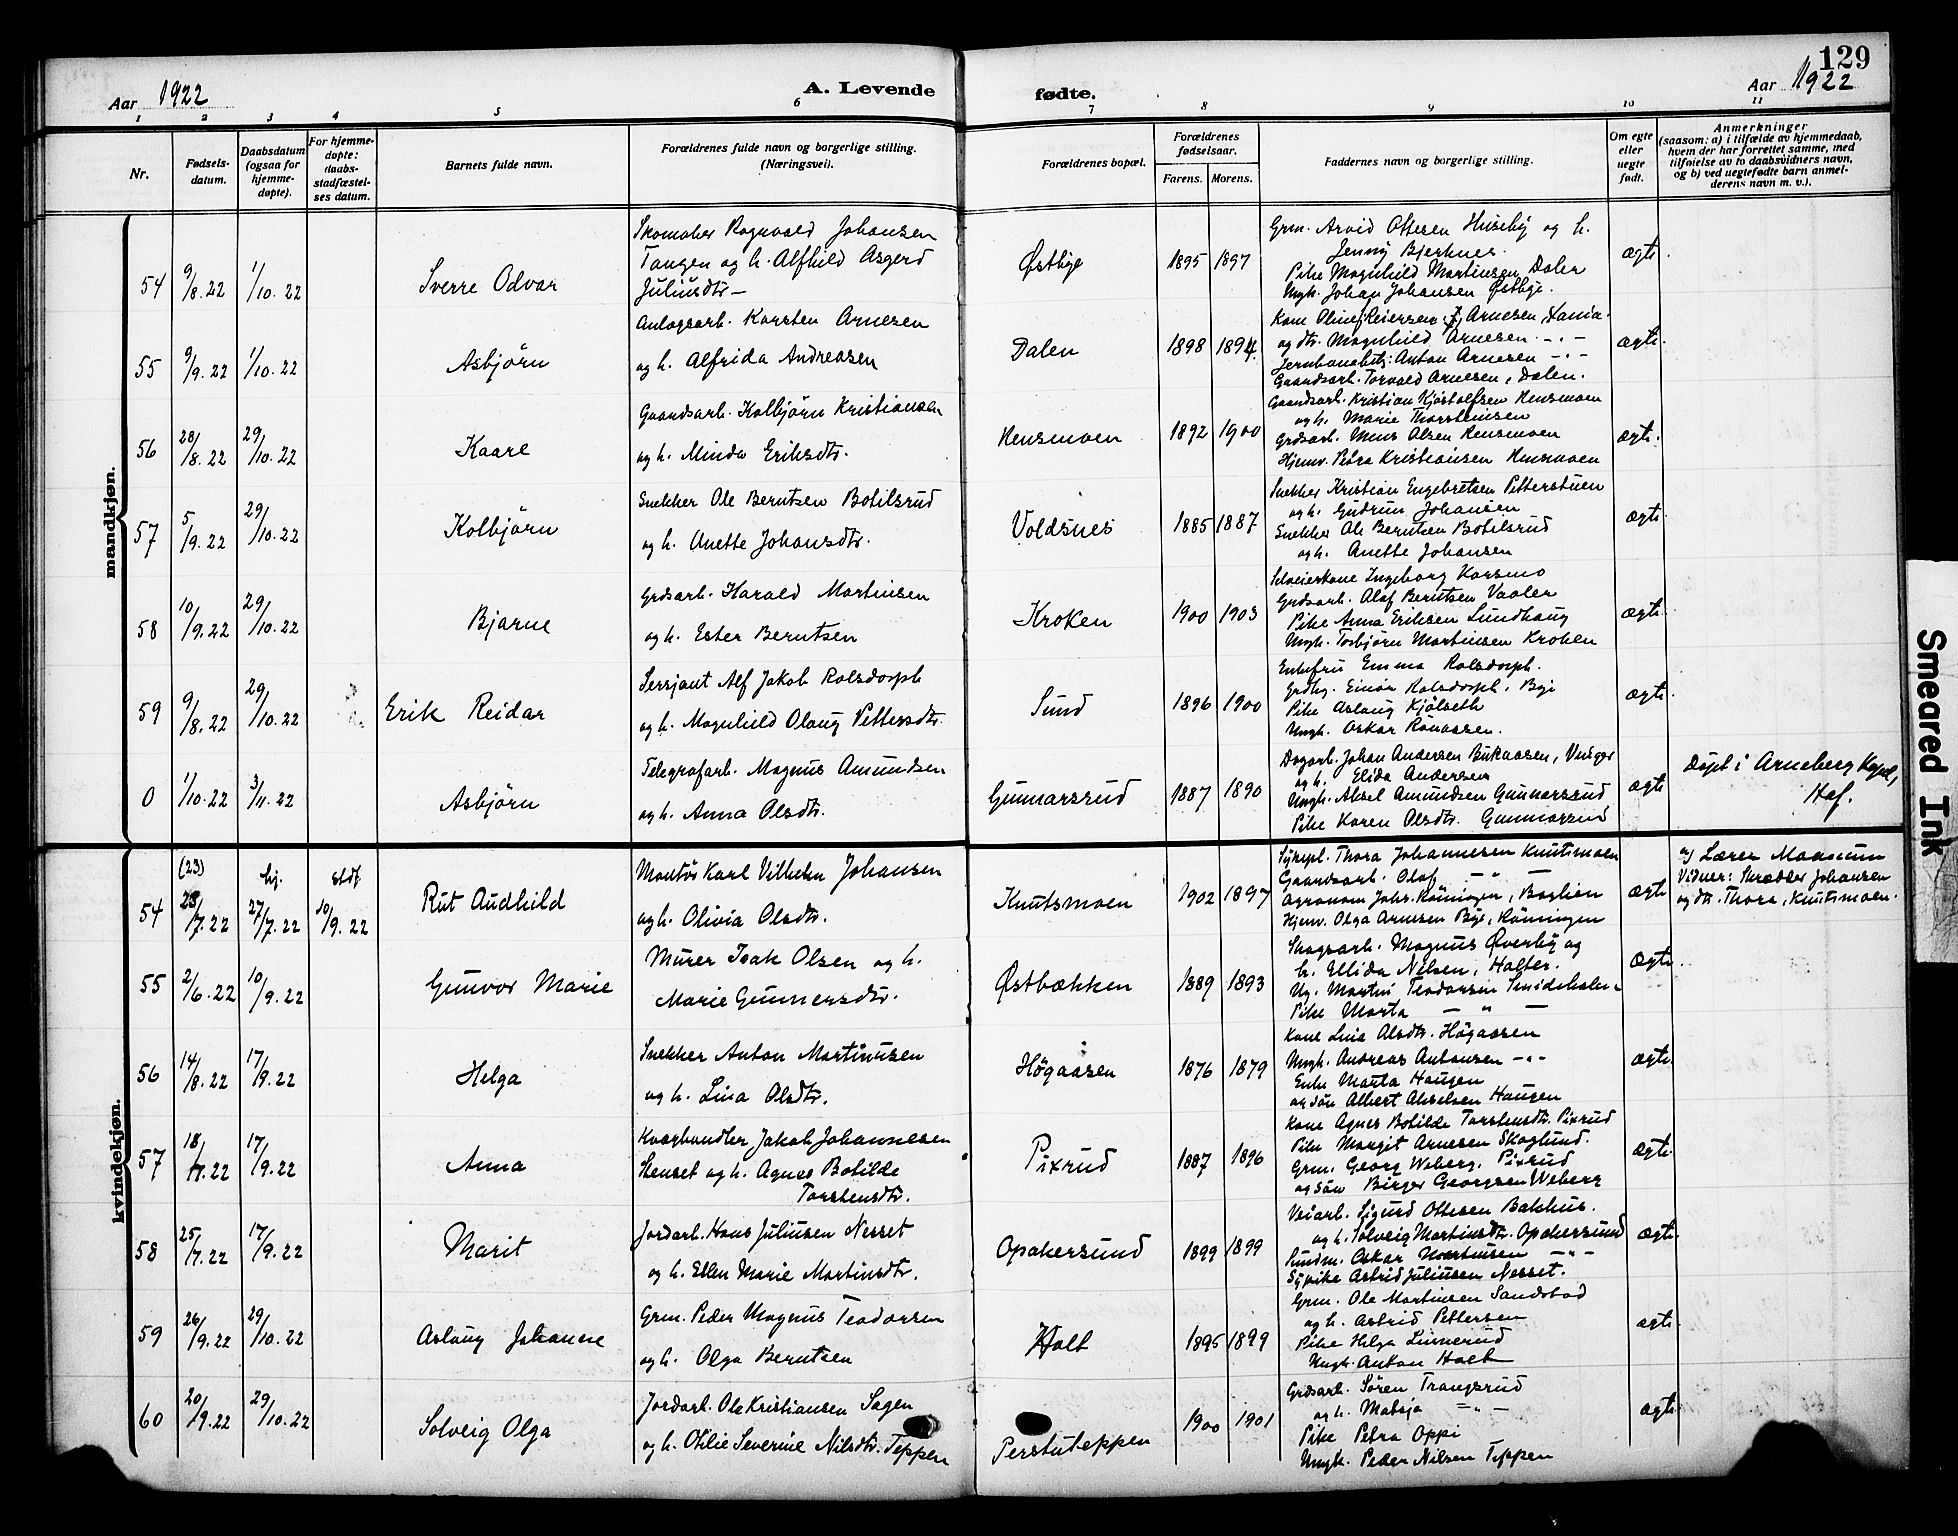 129
Aar 1922
A. Levende
fødte.
Aar 1922
1 2 3 4 5 6 7 8 9 10 11
Nr.
Fødsels-
datum.
Daabsdatum
(ogsaa for
hjemme-
døpte).
For hjemme-
døpte:
daabs-
stadfæstel-
ses datum.
Barnets fulde navn.
Forældrenes fulde navn og borgerlige stilling.
(Næringsvei).
Forældrenes bopæl.
Forældrenes
fødselsaar.
Farens. Morens.
Faddernes navn og borgerlige stilling.
Om egte
eller
uegte
født.
Anmerkninger
(saasom: a) i tilfælde av hjemmedaab,
hvem der har forrettet samme, med
tilføielse av to daabsvidners navn,
og b) ved uegtefødte barn anmel-
derens navn m. v.).
mandkjøn.
54 9/8.22 1/10.22
Sverre Odvar
Skomaker Ragnvald Johansen
Tangen og h. Alfhild Asgerd
Juliusdtr
Østbye
1895 1897
Grm. Arvid Ottesen Huseby og h.
Jenny Bjerknes.
Pike Magnhild Martinsen Dalen
Ungk. Johan Johansen Østbye.
ægte.
55 9/9.22 1/10.22
Asbjörn
Anlagsarb. Karsten Arnesen
og h. Alfrida Andreasen
Dalen
1898 1894
og dtr. Magnhild Arnesen - " -
Jernbanebetj. Anton Arnesen - " -
Gaardsarb. Torvald Arnesen, Dalen.
ægte.
56 28/8.22 29/10.22
Kaare
Gaardsarb. Kolbjörn Kristiansen
og h. Minda Eriksdtr.
Hensmoen
1892 1900
Gaardsarb. Kristian Kjøstolfsen Hensmoen
og h. Marie Thorsteinsen
Grdsarb. Mons Olsen Hensmoen
Hjemv. Petra Kristiansen Hensmoen
ægte.
57 5/9.22 29/10.22
Kolbjörn
Snekker Ole Berntsen Botilsrud
og h. Anette Johansdtr.
Voldsnes
1885 1887
Snekker Kristian Engebretsen Petterstuen
og h. Gudrun Johansen
Snekker Ole Berntsen Botilsrud
og h. Anette Johansen
ægte
58 10/9.22 29/10.22
Bjarne
Grdsarb. Harald Martinsen
og h. Ester Berntsen
Kroken
1900 1903
Selveierkone Ingeborg Korsmo
Grdsarb. Olaf Berntsen Vaaler
Pike Anna Eriksen Lundhaug
Ungk. Torbjörn Martinsen Kroken
ægte.
59 9/8.22 29/10.22
Erik Reidar
Sersjant Alf Jakob Rolsdorph
og h. Magnhild Olaug Pettersdtr.
Sund
1896 1900
Enkefru Emma Rolsdorph.
Grdbr. Einar Rolsdorph, Bye
Pike Aslaug Kjölseth
Ungk. Oskar Rönaasen.
ægte.
0 1/10.22 3/11.22
Asbjörn
Telegrafarb. Magnus Amundsen
og h. Anna Olsdtr.
Gunnarsrud
1887 1890
Dagarb. Johan Andersen Bukaasen, Vinger
og h. Elida Andersen
Ungk. Aksel Amundsen Gunnarsrud
Pike Karen Olsdtr. Gunnarsrud
ægte
Døpt i Arneberg Kapel,
Hof.
kvindekjøn.
54 (23) 23/7.22 hj. 27/7.22 stdf. 10/9.22
Rut Audhild
Montör Karl Vilhelm Johansen
og h. Olivia Olsdtr.
Knutsmoen
1902 1897
Sykepl. Thora Johannesen Knutsmoen
Gaardsarb. Olaf - " -
Agronom Johs. Röningen, Baglien
Hjemv. Olga Arnesen Bye, Röningen
ægte.
a) Lærer Maanum
Vidner: Skrædder Johansen
og dtr. Thora, Knutsmoen.
55 2/6.22 10/9.22
Gunvor Marie
Murer Isak Olsen og h.
Marie Gunnersdtr.
Østbækken
1889 1893
Skogsarb. Magnus Øverby og
h. Ellida Nilsen, Halter.
Pike Marta - " -
ægte.
56 14/8.22 17/9.22
Helga
Snekker Anton Martinusen
og h. Lina Olsdtr.
Högaasen
1876 1879
Kone Lina Olsdtr. Högaasen
Ungk. Andreas Antonsen - " -
Enke Marta Haugen
og sön Albert Akselsen Haugen
ægte.
57 18/7.22 17/9.22
Anna
Kvæghandler Jakob Johannesen
Stenset og h. Agnes Botilde
Torstensdtr.
Pixrud
1887 1896
Kone Agnes Botilde Torstensdtr. Pixrud
Pike Margit Arnesen Skoglund.
Grm. Georg Weberg, Pixrud
og sön Birger Georgsen Weberg
ægte.
58 25/7.22 17/9.22
Marit
Jordarb. Hans Juliusen Nesset
og h. Ellen Marie Martinsdtr.
Opakersund
1899 1899
Veiarb. Sigurd Ottesen Bakhus.
og h. Solveig Martinsdtr. Opakersund
Sundm. Oskar Martinsen - " -
Sypike Astrid Juliusen Nesset.
ægte.
59 26/9.22 29/10.22
Aslaug Johanne
Grm. Peder Magnus Teodorsen
og h. Olga Berntsen
Holt
1895 1899
Grm. Ole Martinsen Sandstad
og h. Astrid Pettersen
Pike Helga Linnerud
Ungk. Anton Holt
ægte.
60 20/9.22 29/10.22
Solveig Olga
Jordarb. Ole Kristiansen Sagen
og h. Otilie Severine Nilsdtr. Teppen
Perstuteppen
1900 1901
Grdsarb. Sören Trangsrud
og h. Matæja - " -
Pike Petra Oppi
Ungk. Peder Nilsen Teppen
ægte.
Smeared Ink